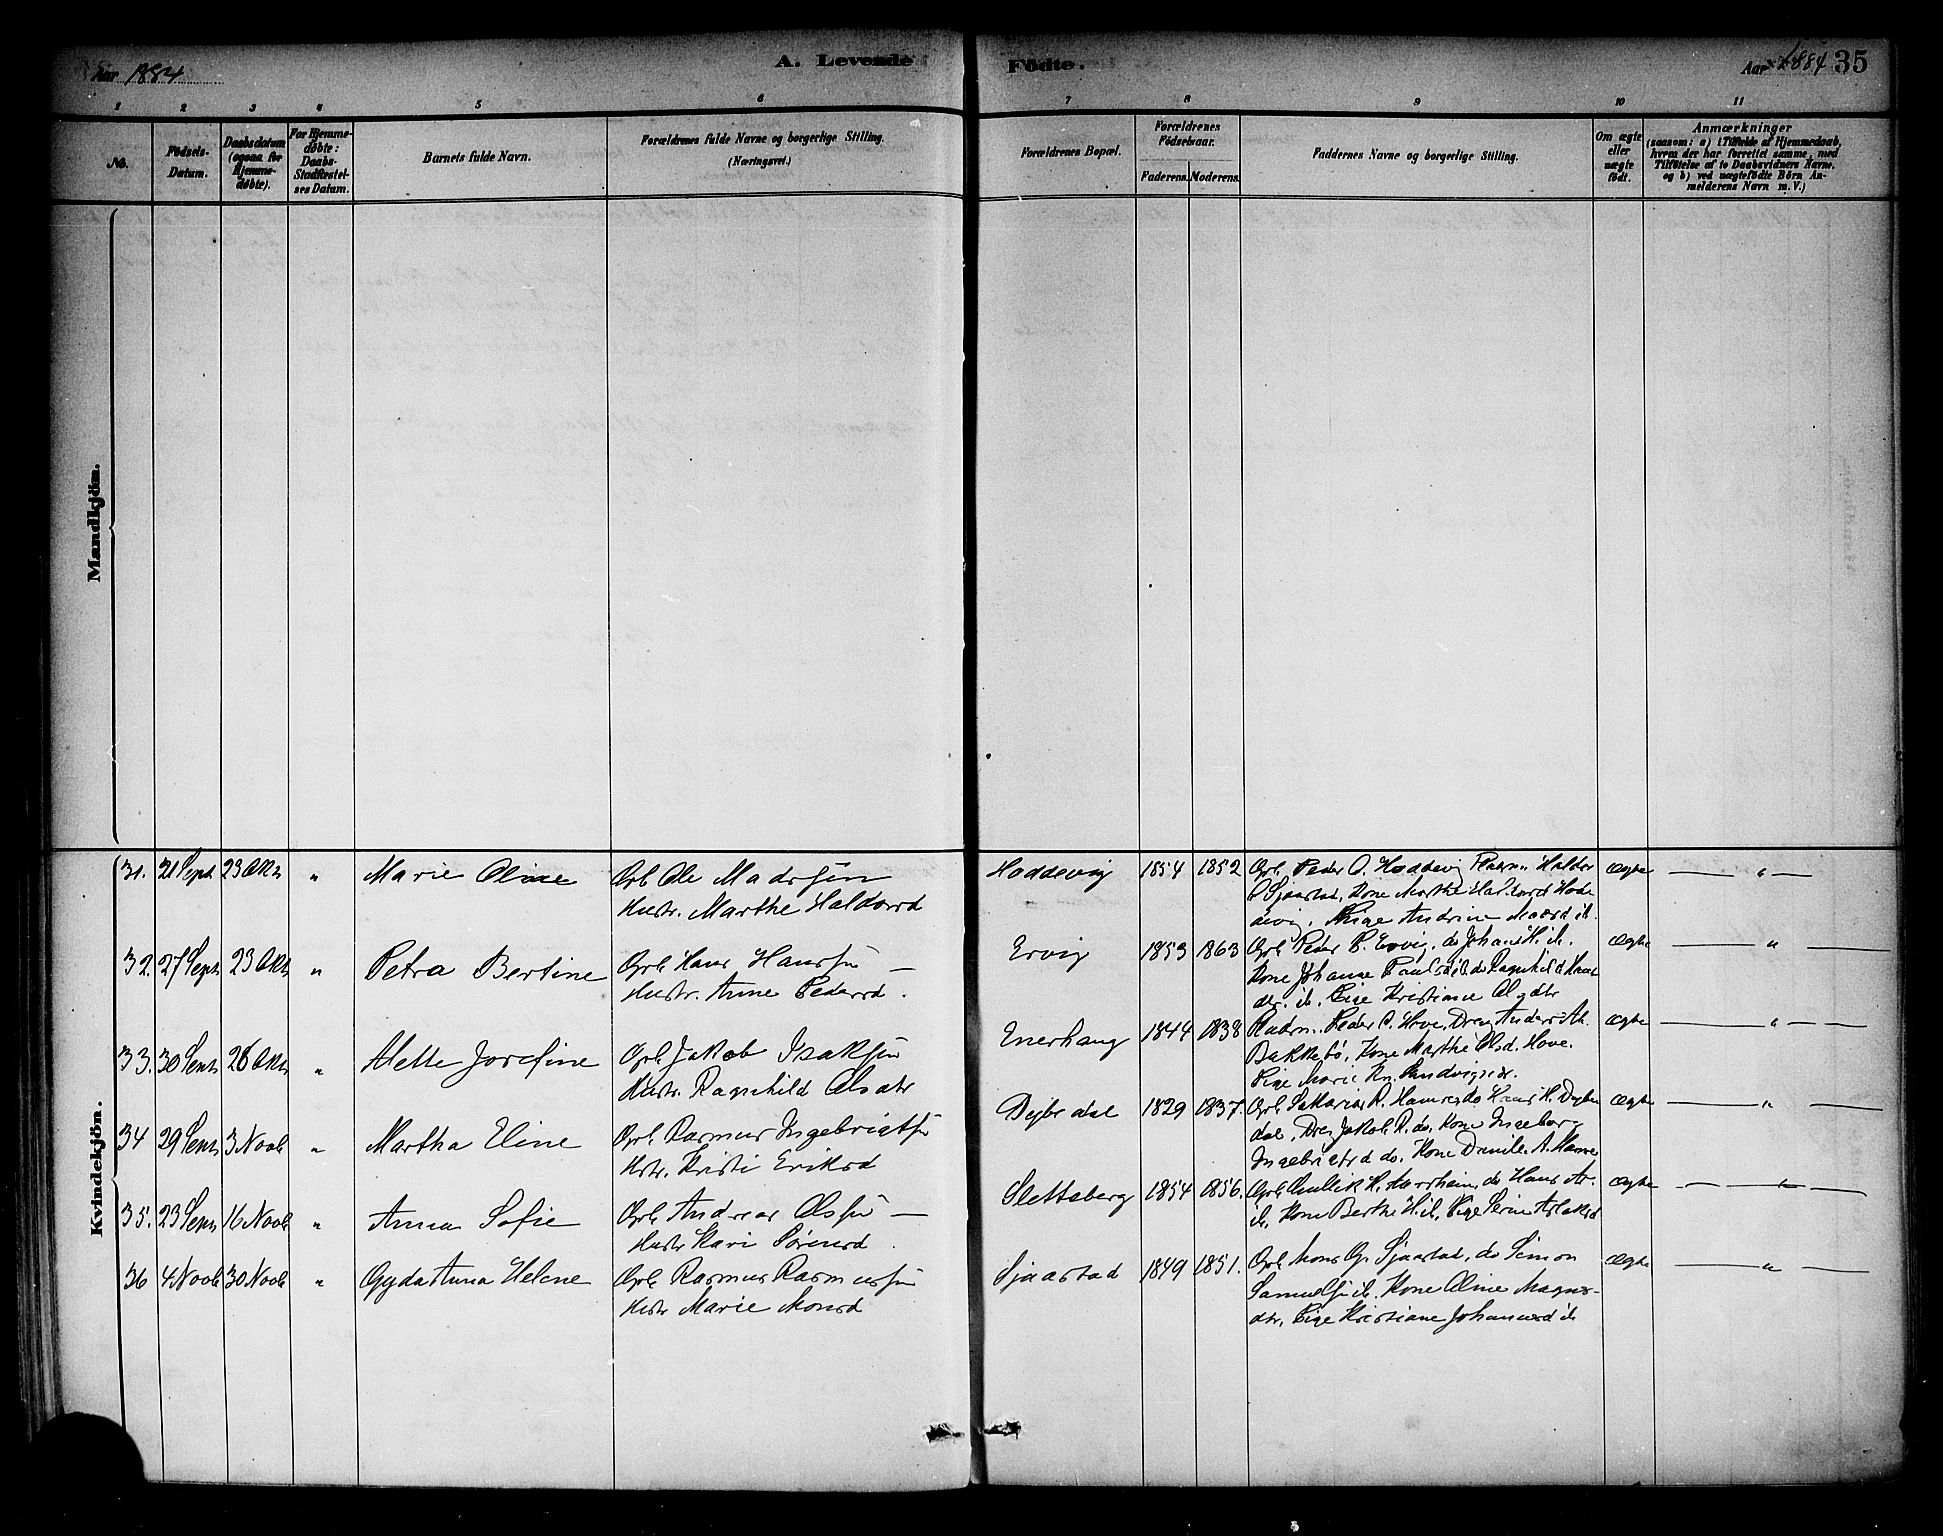 Aar 1884
A. Levende Födte.
Aar 1884 35
1 2 3 4 5 6 7 8 9 10 11
No.
Födsels-
Datum.
Daabsdatum
(ogsaa for
Hjemme-
døbte).
For Hjemme-
døbte:
Daabs-
Stadfæstel-
ses Datum.
Barnets fulde Navn.
Forældrenes fulde Navne og borgerlige Stilling.
(Næringsvei.)
Forældrenes Bopæl.
Forældrenes
Födselsaar.
Faderens. Moderens.
Faddernes Navne og borgerlige Stilling.
Om ægte
eller
uægte
födt.
Anmærkninger
(saasom: a) i Tilfælde af Hjemmedaab,
hvem der har forrettet samme, med
Tilföielse af to Daabsvidners Navne.
og b) ved uægtefödte Börn An-
melderens Navn m.V.)
Mandkjön.
Kvindekjön.
31. 21 Sept 23 Okt " Marie Oline
Grb. Ole Madssøn
Hustr. Marthe Haldorsd
Hoddevig 1854 1852
Grb. Peder O. Hoddevig
Sjaastad, Kone Marthe
Pige Andrine
Ægte "
32. 27 Sept 23 Okt " Petra Bertine
Grb. Hans Hanssøn
Hustr. Anne Pedersd.
Ervig 1853 1863
Grb. Peder P. Ervig, do Johan H. ib.
Kone Johanne Paulsd ib. do Ragnhild
ib. Pige Kristiane
Ægte "
33. 30 Sept 26 Okt " Mette Josefine
Grb. Jakob Isaksøn
Hustr. Ragnhild Olsdtr
Enerhaug 1844 1838
Peder O. Hove, Dreng Anders
Bakkebø, Kone Marthe Olsd. Hove.
Pige Marie Kn.
Ægte "
34 29 Sept 3 Novb " Martha Eline
Grb. Rasmus Ingebrigtsøn
Hustr. Kristi Eriksd
Dybedal 1829 1837.
Grb. Sakarias R. Hamre do Hans H. Dybe
dal, Dreng Jakob R. do, Kone Ingeborg
Ingebrigtsd do. Kone A. Hamre
Ægte "
35. 23 Sept 16 Novb " Anna Sofie
Grb. Andreas Olssøn
Hustr. Kari Sørensd.
Sletteberg 1854 1856.
Grb. H. do Hans
ib, Kone Berthe H. ib, Pige Serine Aslaksd
Ægte "
36 4 Novb 30 Novb " Gyda Anna Helene
Grb. Rasmus Rasmussøn
Hustr. Marie Monsd
Sjaastad 1849 1851.
Grb. Mons G. Sjaastad, do Simon
Samuelsøn ib. Kone Oline Magne-
dtr, Pige Kristiane Johannesd ib
Ægte "